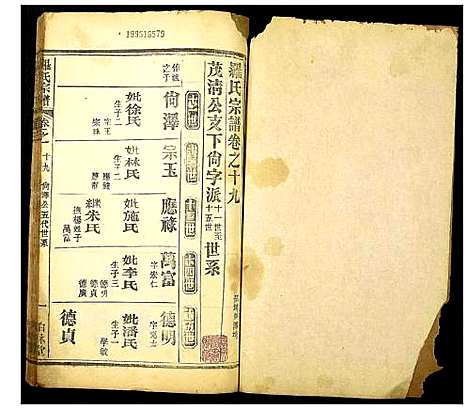 199516579
羅氏宗譜卷之十九
茂清公支下尙字派十一世至十五世世系
十一世
尙澤
妣徐氏
生子二
宗玉
宗珠
十二世
宗玉
妣林氏
生子二
應祿
十三世
應祿
妣施氏
繼朱氏
撫楊姓子
萬富
十四世
萬富
字宏仁
妣李氏
生子三
德明
德貞
德廣
十五世
德明
妣潘氏
生子一
學敏
德貞
羅氏宗譜
卷之
十九
尙澤公五代世系
一